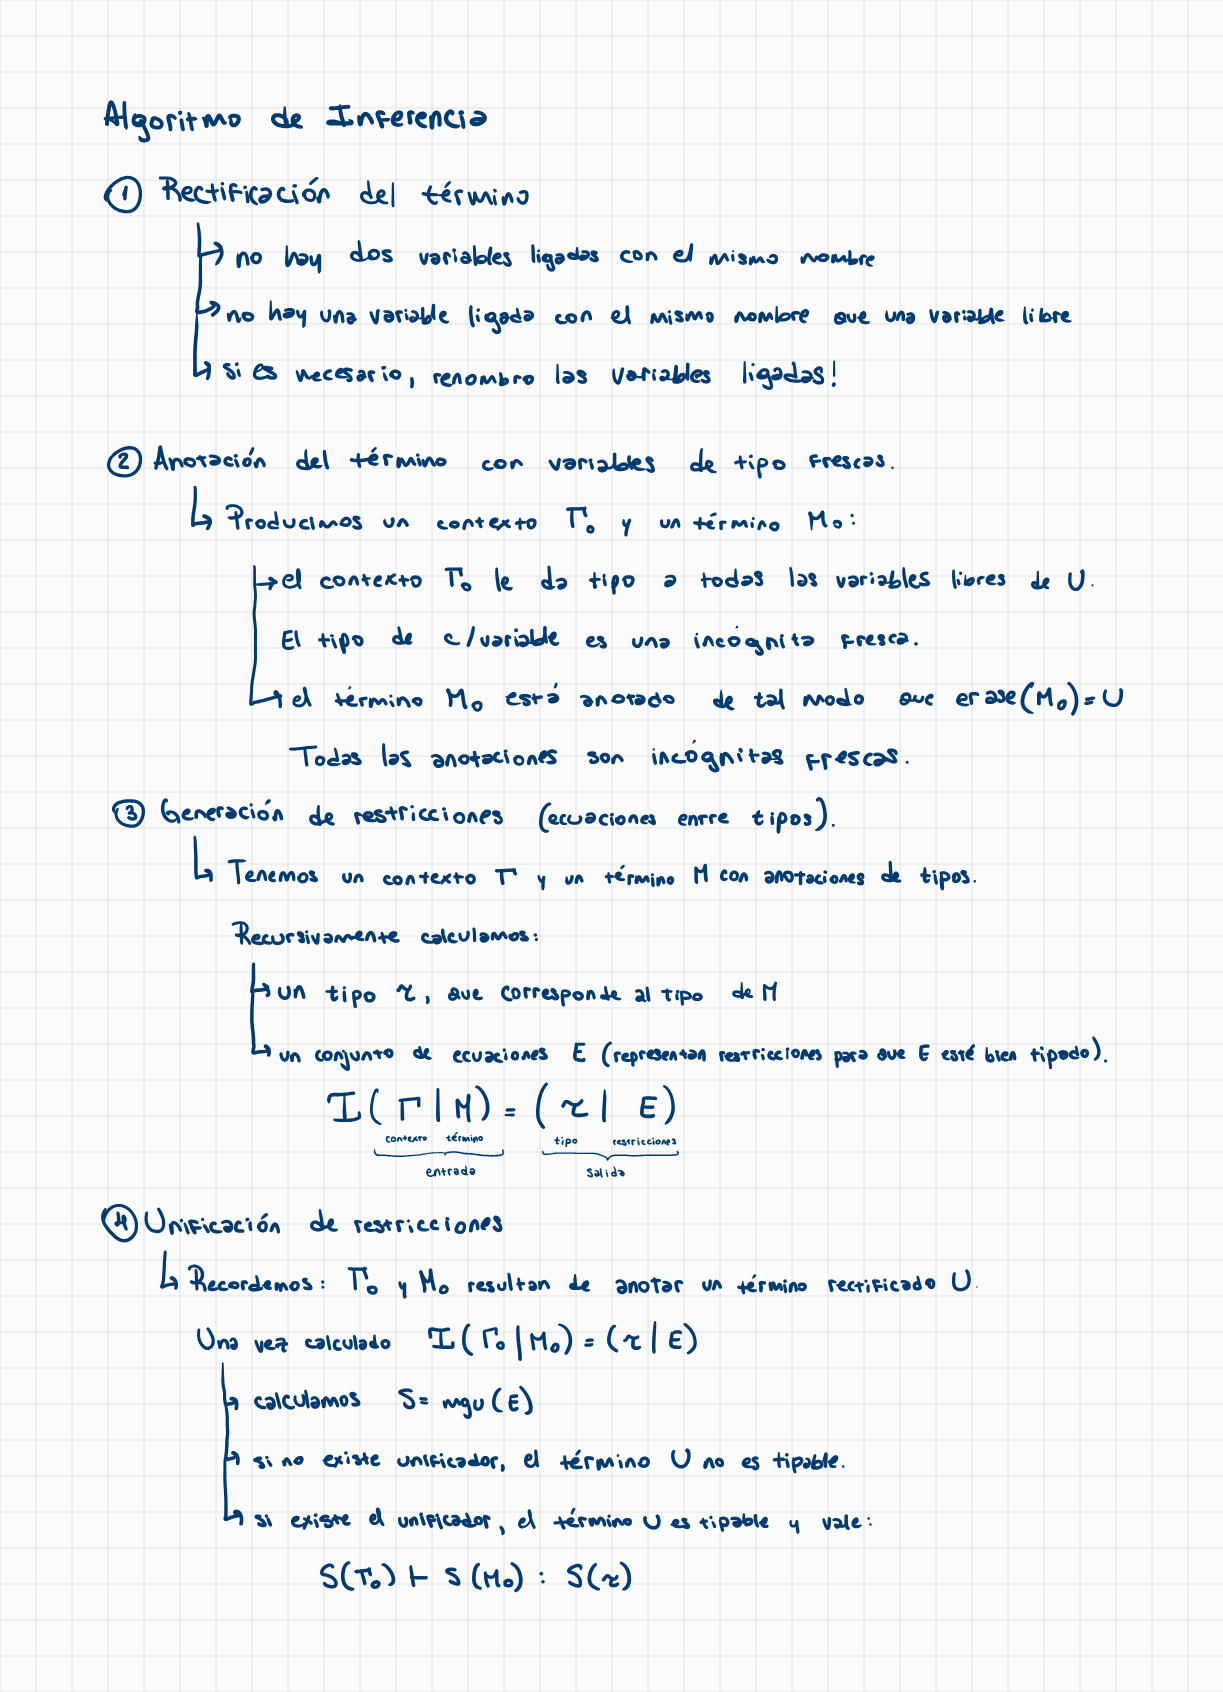 Algoritmo de Inferencia
① Rectificación del término
↳ no hay dos variables ligadas con el mismo nombre
↳ no hay una variable ligada con el mismo nombre que una variable libre
↳ si es necesario, renombro las variables ligadas!
② Anotación del término con variables de tipo frescas.
↳ Producimos un contexto Γ₀ y un término M₀:
→ el contexto Γ₀ le da tipo a todas las variables libres de U.
El tipo de c/variable es una incógnita fresca.
→ el término M₀ está anotado de tal modo que erase(M₀) = U
Todas las anotaciones son incógnitas frescas.
③ Generación de restricciones (ecuaciones entre tipos).
↳ Tenemos un contexto Γ y un término M con anotaciones de tipos.
Recursivamente calculamos:
→ un tipo τ, que corresponde al tipo de M
→ un conjunto de ecuaciones E (representan restricciones para que E esté bien tipado).
I(Γ | M) = (τ | E)
contexto término tipo restricciones
entrada salida
④ Unificación de restricciones
↳ Recordemos: Γ₀ y M₀ resultan de anotar un término rectificado U.
Una vez calculado I(Γ₀ | M₀) = (τ | E)
→ calculamos S = mgu(E)
→ si no existe unificador, el término U no es tipable.
→ si existe el unificador, el término U es tipable y vale:
S(Γ₀) ⊢ S(M₀) : S(τ)